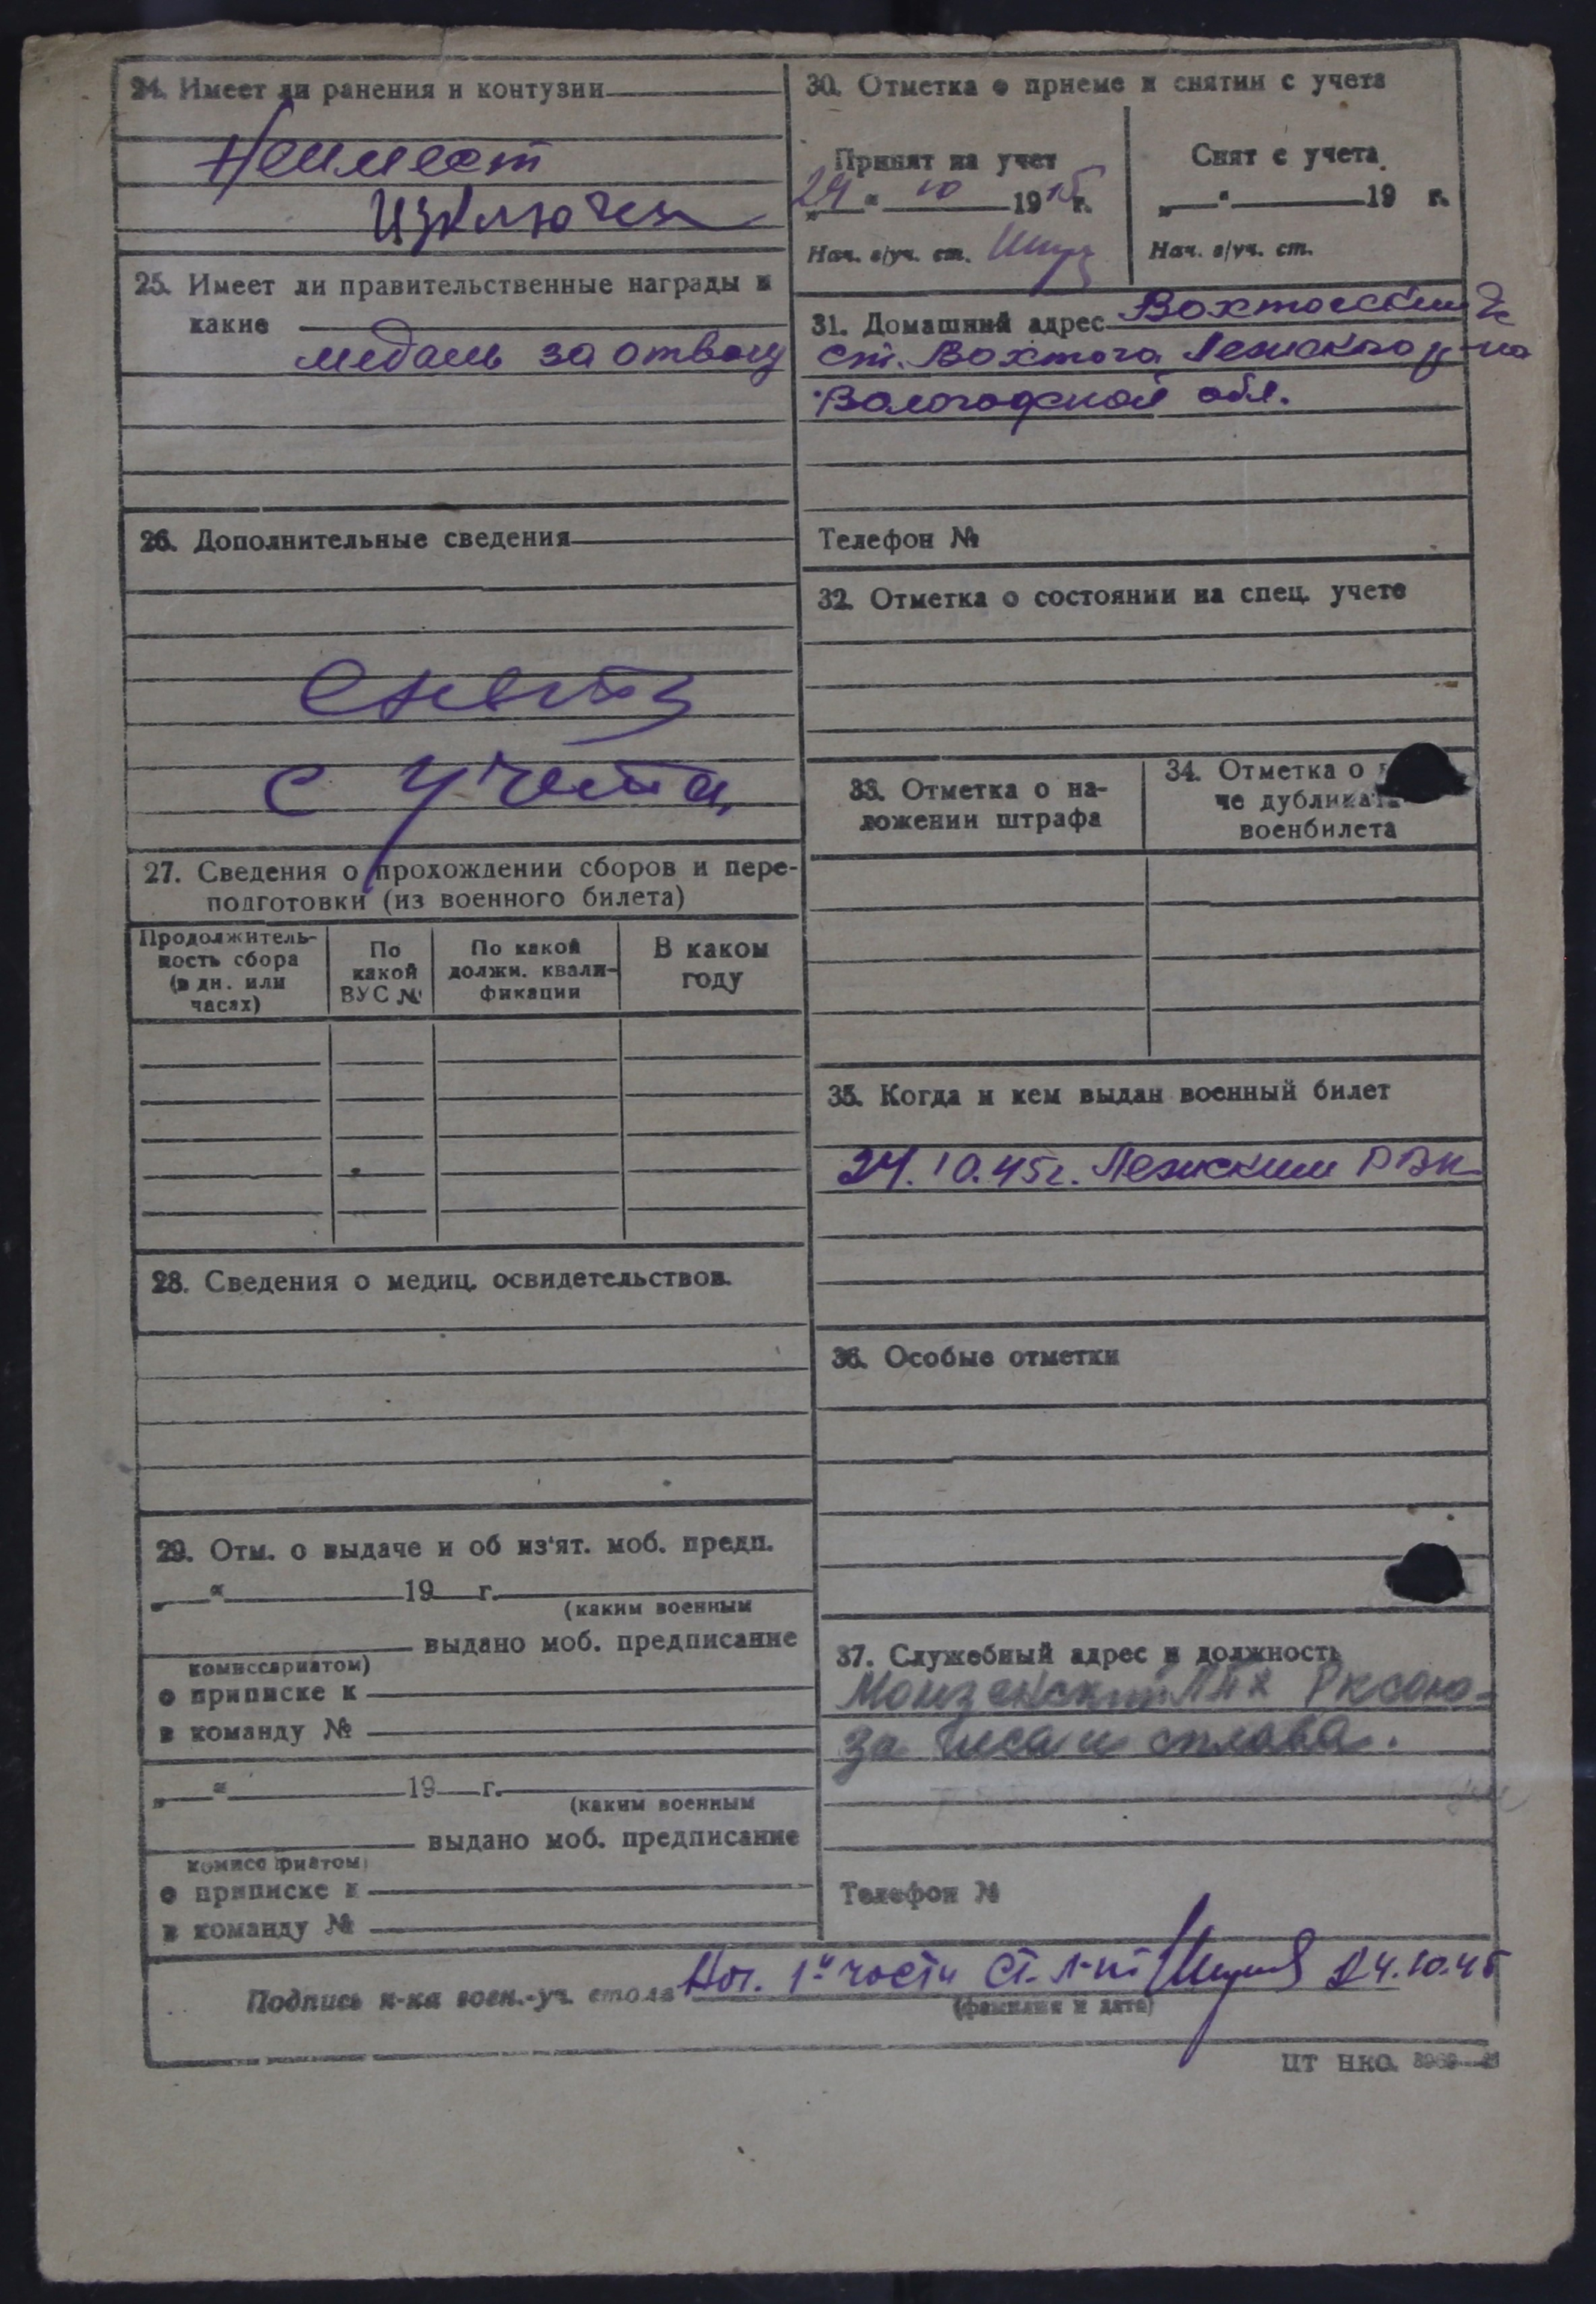 24. Имеет ли ранения и контузии
Неимеет
Изключен
25. Имеет ли правительственные награды и
какие
медаль за отвагу
26. Дополнительные сведения
Снять
с учета
27. Сведения о прохождении сборов и пере-
подготовки (из военного билета)
Продолжитель-
ность сбора
(в дн. или
часах)
По
какой
ВУС №
По какой
должн. квали-
фикации
В каком
году
28. Сведения о медиц. освидетельствов.
29. Отм. о выдаче и об из'ят. моб. предп.
„ “ 19 г.
(каким военным
выдано моб. предписание
комиссариатом)
о приписке к
в команду №
„ “ 19 г.
(каким военным
выдано моб. предписание
комиссариатом)
о приписке к
в команду №
30. Отметка о приеме и снятии с учета
Принят на учет
„24“ 10 1945 г.
Нач. в/уч. ст.
Снят с учета
„ “ 19 г.
Нач. в/уч. ст.
31. Домашний адрес
ст. Вохтога Лежского р-на
Вологодской обл.
Телефон №
32. Отметка о состоянии на спец. учете
33. Отметка о на-
ложении штрафа
34. Отметка о
че дубликата
военбилета
35. Когда и кем выдан военный билет
24.10.45г. Лежским РВК
36. Особые отметки
37. Служебный адрес и должность
Монзенский ЛПХ Рксою-
за леса и сплава.
Телефон №
Подпись н-ка воен.-уч. стола Нач. 1й части Ст. л-нт 24.10.45
(фамилия и дата)
ЦТ НКО.